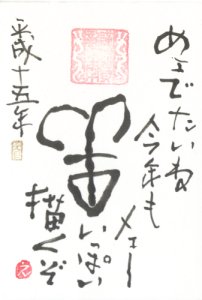 めェでたいね
今年も
メェー
いっぱい
描くぞ
平成十五年